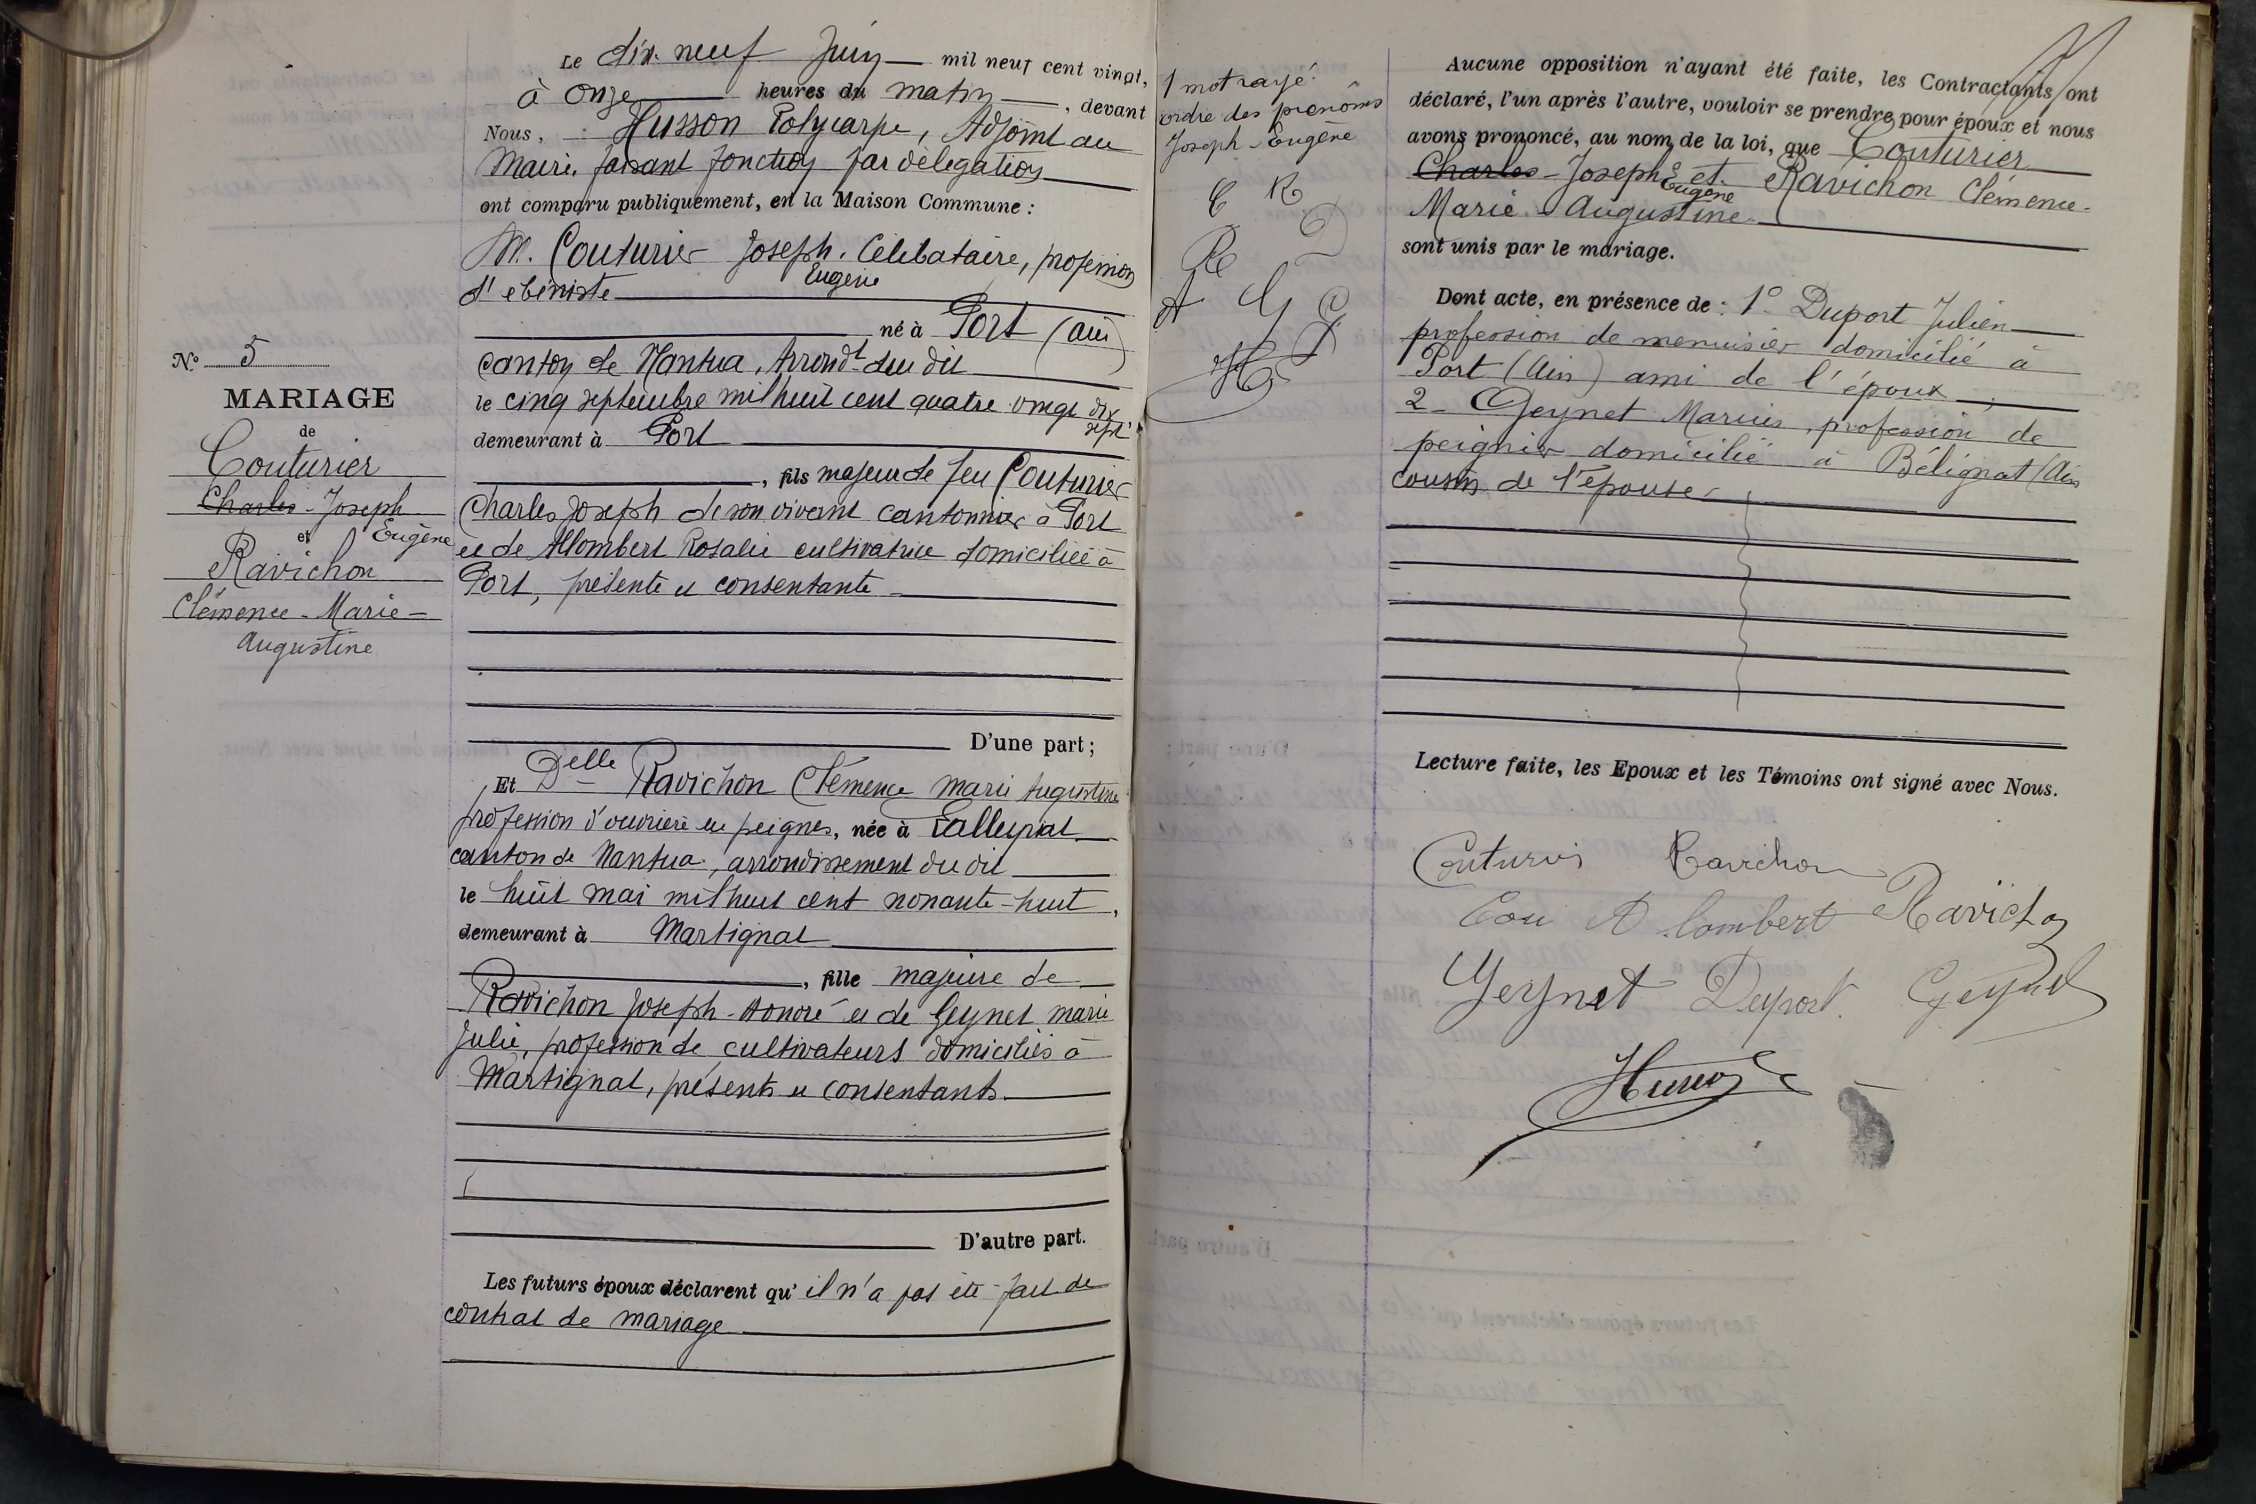 Le dix-neuf Juin mil neuf cent vingt,
à onze heures du matin, devant
Nous, Husson Polycarpe, Adjoint au
Maire, faisant fonction par délégation
ont comparu publiquement, en la Maison Commune :
M. Couturier Joseph. Célibataire, profession
Eugène
d'ébéniste
né à Port (Ain)
canton de Nantua, Arrondt du dit
le cinq septembre mil huit cent quatre vingt dix
sept
demeurant à Port
, fils majeur de feu Couturier
Charles Joseph de son vivant cantonnier à Port
et de Allombert Rosalie cultivatrice domiciliée à
Port, présente et consentante
D'une part ;
Et Delle Ravichon Clémence Marie Augustine
profession d'ouvrière en peignes, née à
canton de Nantua, arrondissement du dit
le huit mai mil huit cent nonante-huit,
demeurant à Martignat
, fille majeure de
Ravichon Joseph-Honoré et de Geynet Marie
Julie, profession de cultivateurs domiciliés à
Martignat, présents et consentants.
D'autre part.
Les futurs époux déclarent qu'il n'a pas été fait de
contrat de mariage
No 5
MARIAGE
de
Couturier
Charles-Joseph
et Eugène
Ravichon
Clémence-Marie-
Augustine
1 mot rayé.
ordre des prénoms
Joseph-Eugène
C R
R D
A G G
H
Aucune opposition n'ayant été faite, les Contractants ont
déclaré, l'un après l'autre, vouloir se prendre pour époux et nous
avons prononcé, au nom de la loi, que Couturier
Charles-Joseph et Ravichon Clémence-
Eugène
Marie-Augustine
sont unis par le mariage.
Dont acte, en présence de : 1o Duport Julien
profession de menuisier domicilié à
Port (Ain) ami de l'époux ;
2- Geynet Marius, profession de
peignier domicilié à Bélignat (Ain
cousin de l'épouse
Lecture faite, les Epoux et les Témoins ont signé avec Nous.
Couturier Ravichon
Cou Alombert Ravichon
Geynet Duport Geynet
Husson